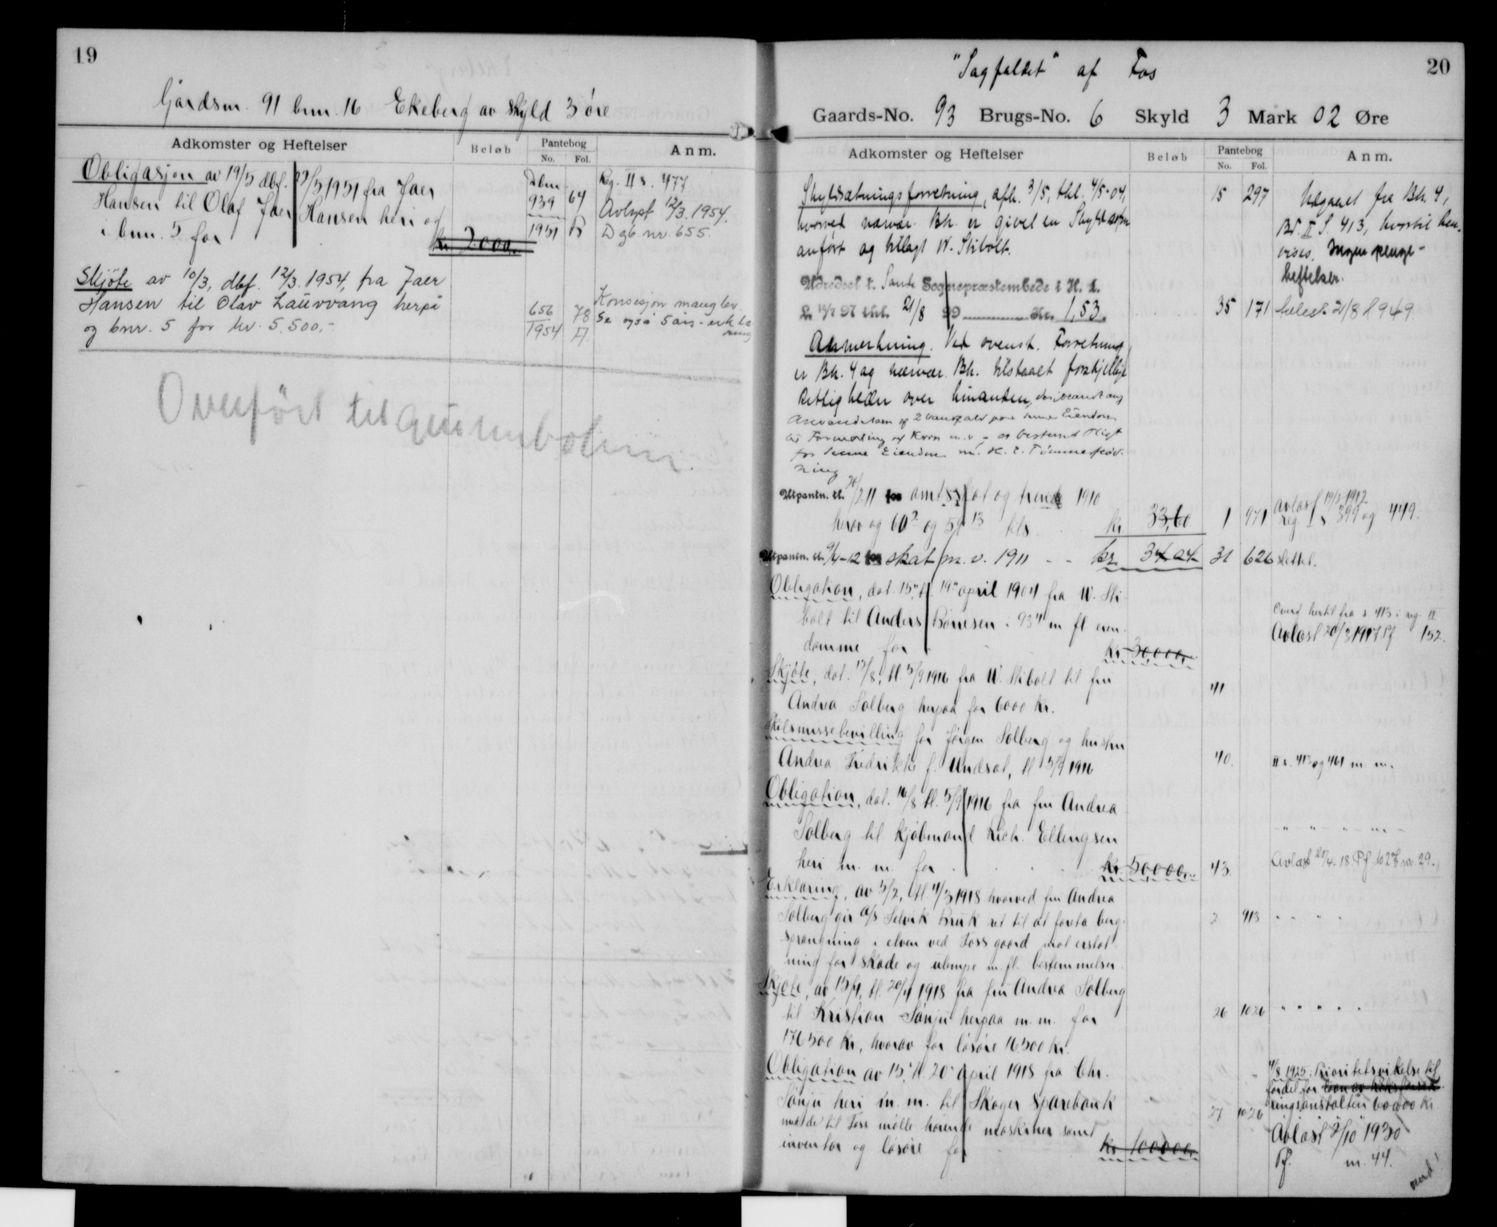 19
Gårdsnr. 91 bnr. 16 Ekeberg av skyld 3 øre
Adkomster og Heftelser
Beløb
Pantebog
No. Fol.
Anm.
Obligasjon av 19/5 dbf. 23/5 1951 fra Jaer
Hansen til Olaf Jaer Hansen heri og
i bnr. 5 for kr 2000.-
Dbnr. 939 1951
64 B
Reg. II s. 477
Avlyst 12/3. 1954.
Dgb nr. 655.
Skjøte av 10/3, dbf. 12/3. 1954, fra Jaer
Hansen til Olav Lauvvang herpå
og bnr. 5 for kr. 5.500,-
656 1954
78 A.
Konsesjon mangler
Se også 5 års-erklæ
ring
Overført til grunnboken.
20
"Sagfaldet" af Fos
Gaards-No. 93 Brugs-No. 6 Skyld 3 Mark 02 Øre
Adkomster og Heftelser
Beløb
Pantebog
No. Fol.
Anm.
Skyldsætningsforretning, afh. 3/5, thl. 4/5-04,
hvorved nærvær. Bk. er givet en Skyld som
anført og tillagt W. Stibolt.
15 297
Udgaaet fra Bk. 4,
Bd. II S. 413, hvortil hen-
vises. Ingen penge-
heftelser.
Udredset t. Sande Sogneprestembede i H. t.
L 15/7 07 thl. 21/8 09 Kr. 1,53.
35 171
Slettet 21/8 1949.
Anmerkning. Ved ovenst. Forretning
er Bk. 4 og nærvær. Bk. tilstaaet forskjellige
Rettigheder over hinanden, deriblandt ang
Anvendelsen af Vandfald paa denne Eiendom
til Formaling af Korn m.v. - og bestemt Pligt
for denne Eiendom m. H. t. Tømmerflød-
ning
Utpantn. tl. 21/2 11 for amtsskat og herredsk 1910
kr 33,60
1 971
Avløst 19/2 1912
Reg. I s 399 og 449.
Utpantn. tl. 9/4-12 for skat m.v. 1911 - - kr. 34.04
31 626
Slettet.
Obligation, dat. 15. tl. 19. april 1904 fra W. Sti-
bolt til Anders Bønesen i 93/4 m fl eien-
domme for kr 30000,
Overf hertil fra s 413 i reg. II
Avløst 20/3 1917 Pf 152.
Skjøte, dat. 15/8, tl 5/9 1916 fra W. Stibolt til fru
Andrea Solberg herpaa for 6000 kr.
41
Skilsmissebevilling for Jørgen Solberg og hustru
Andrea Fredrikke f. Undsal, tl 5/9 1916
40.
II s. 413 og 461 m. m.
Obligation, dat. 16/8 tl. 5/9 1916 fra fru Andrea
Solberg til Kjøbmand Rich. Ellengsen
heri m. m. for kr. 50000,-
43
" " " " " "
Avløst 25/4. 18 Pf. 1023 nr 29.
Erklæring, av 5/2, tl 4/3 1918 hvorved fru Andrea
Solberg gir A/S Selvik Bruk ret til at foreta berg-
sprængning i elven ved Foss gaard mot erstat-
ning for skade og ulempe m. fl. bestemmelser.
2 913
" " " "
Skjøte, av 15/4, tl. 20/4 1918 fra fru Andrea Solberg
til Kristian Sønju herpaa m. m. for
176500 kr., hvorav for løsøre 16500 kr.
26 1026
" " " " "
Obligation av 15. tl 20. april 1918 fra Chr.
Sønju heri m. m. til Skoger Sparebank
med de til Foss mølle hørende maskiner samt
inventar og løsøre for kr 100000.
27 1026
4/8 1925: Prioritetsvikelse til
fordel for
ringsanstalten 60000 kr
Avløst 2/10 1930
Pf. nr. 44.
vend!